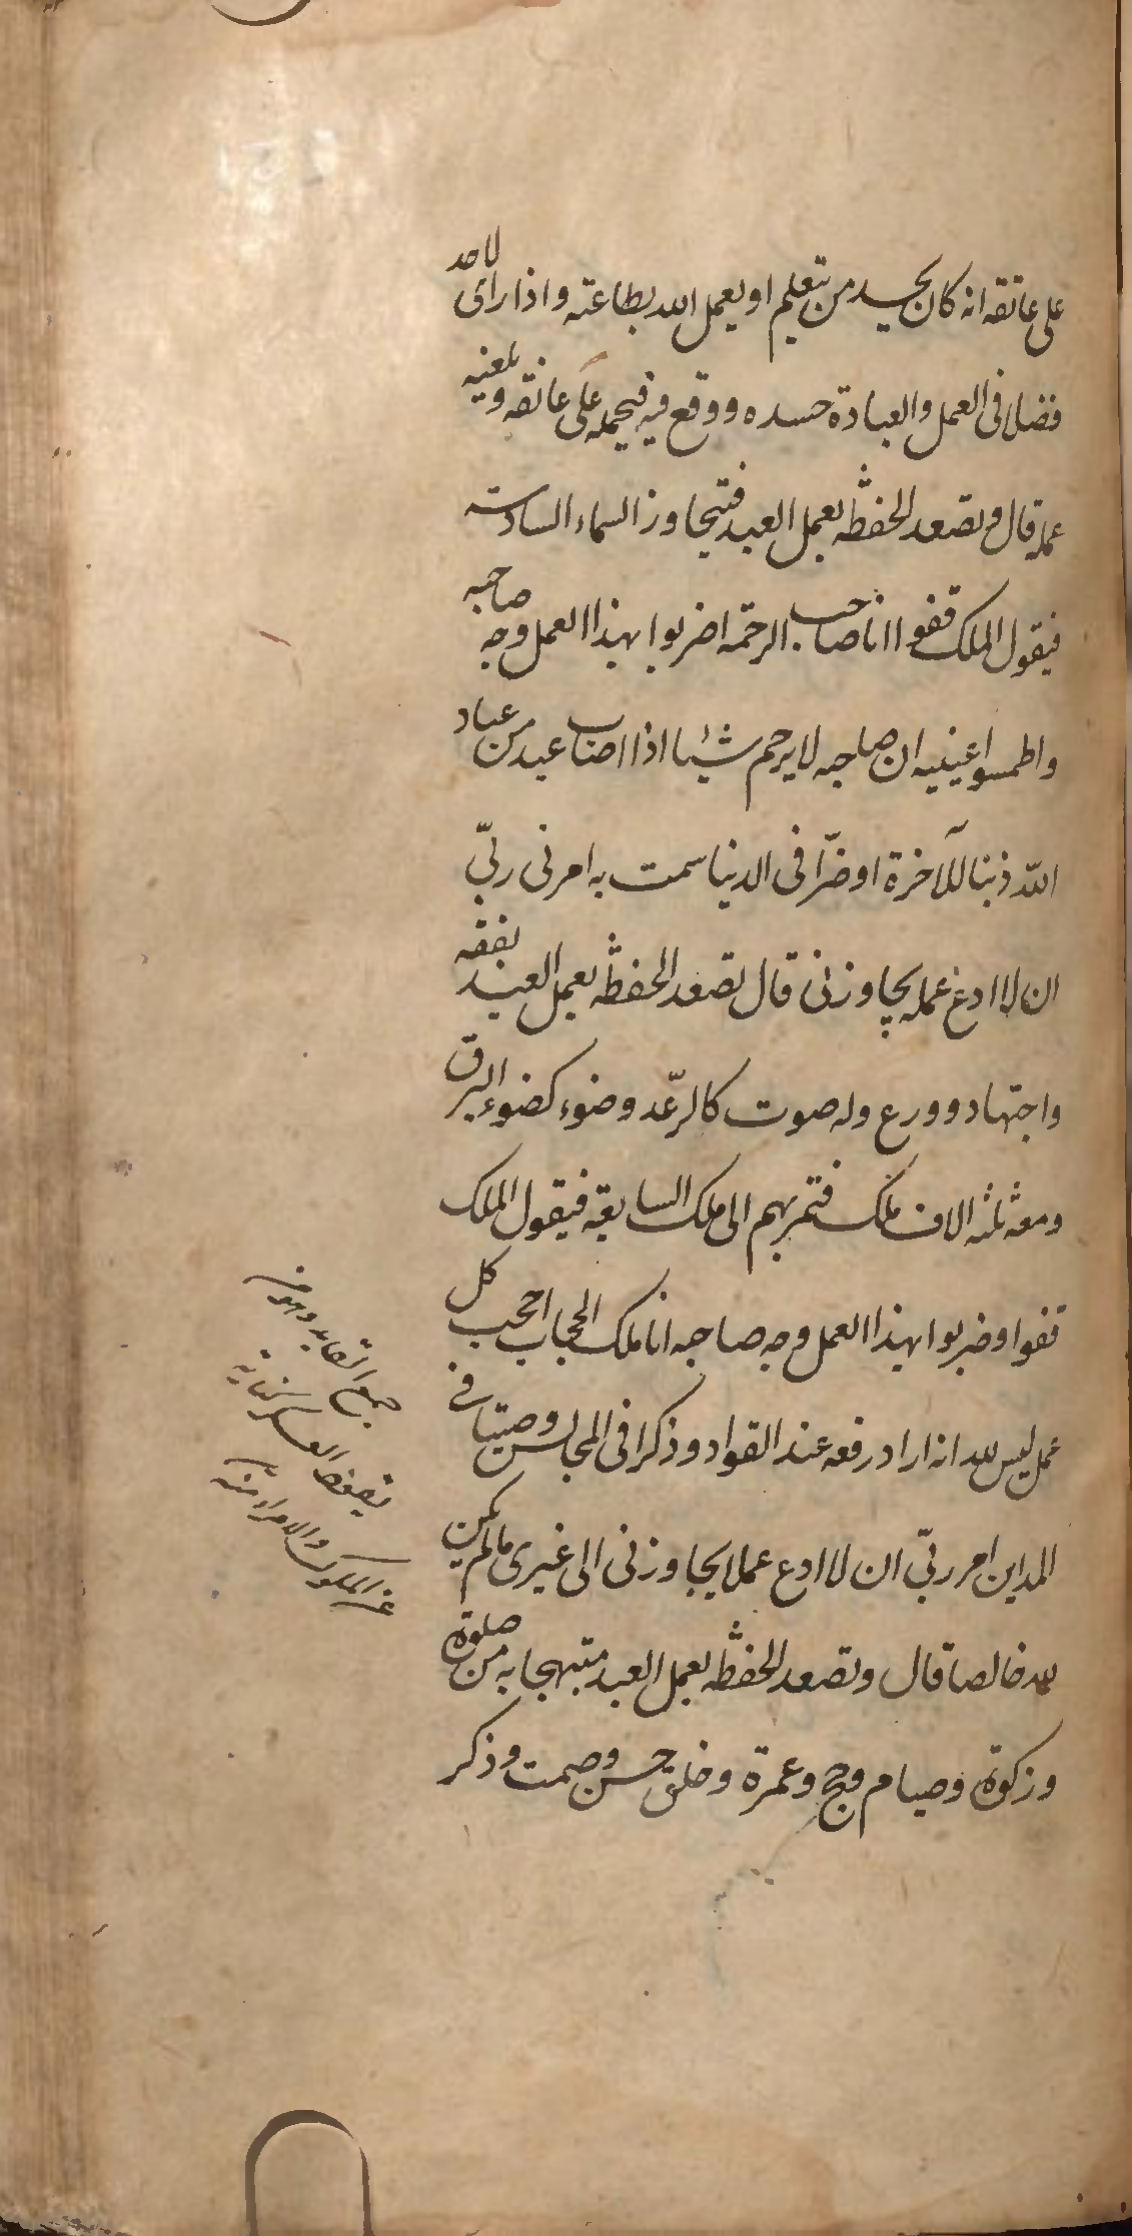 على عاتقه انه كان يحسد من يتعلم او يعمل الله بطاعته واذا راى لاحد
فضلا فى العمل والعبادة حسده ووقع فيه فيحمله على عاتقه ويلعنه
عمله قال وتصعد الحفظه بعمل العبد فتجاوز السماء السادسته
فيقول الملك قفوا انا صاحب الرحمة اضربوا بهذا العمل وجه صاحبه
واطمسوا عينيه ان صاحبه لا يرحم شيئا اذا اصاب عبد من عباد
الله ذنبا للآخرة او ضرّا فى الدنيا سمت به امرنى ربّي
ان لا ادع عمله يجاوزنى قال تصعد الحفظه بعمل العبد بفقه
واجتهاد وورع وله صوت كالرّعد وضوء كضوء البرق
ومعه ثلثه الاف ملك فتمر بهم الى ملك السابعة فيقول الملك
قفوا وضربوا بهذا العمل وجه صاحبه انا ملك الحجاب احجب كل
عمل ليس لله انه اراد رفعه عند القواد وذكرا فى المجالس وصيتا فى
المداين امر ربّي ان لا ادع عملا يجاوزنى الى غيرى ما لم يكن
لله خالصا قال وتصعد الحفظه بعمل العبد مبتهجا به من صلوة
وزكوة وصيام وحج وعمرة وخلق حسن وصمت وذكر
جمع القايد وهو من